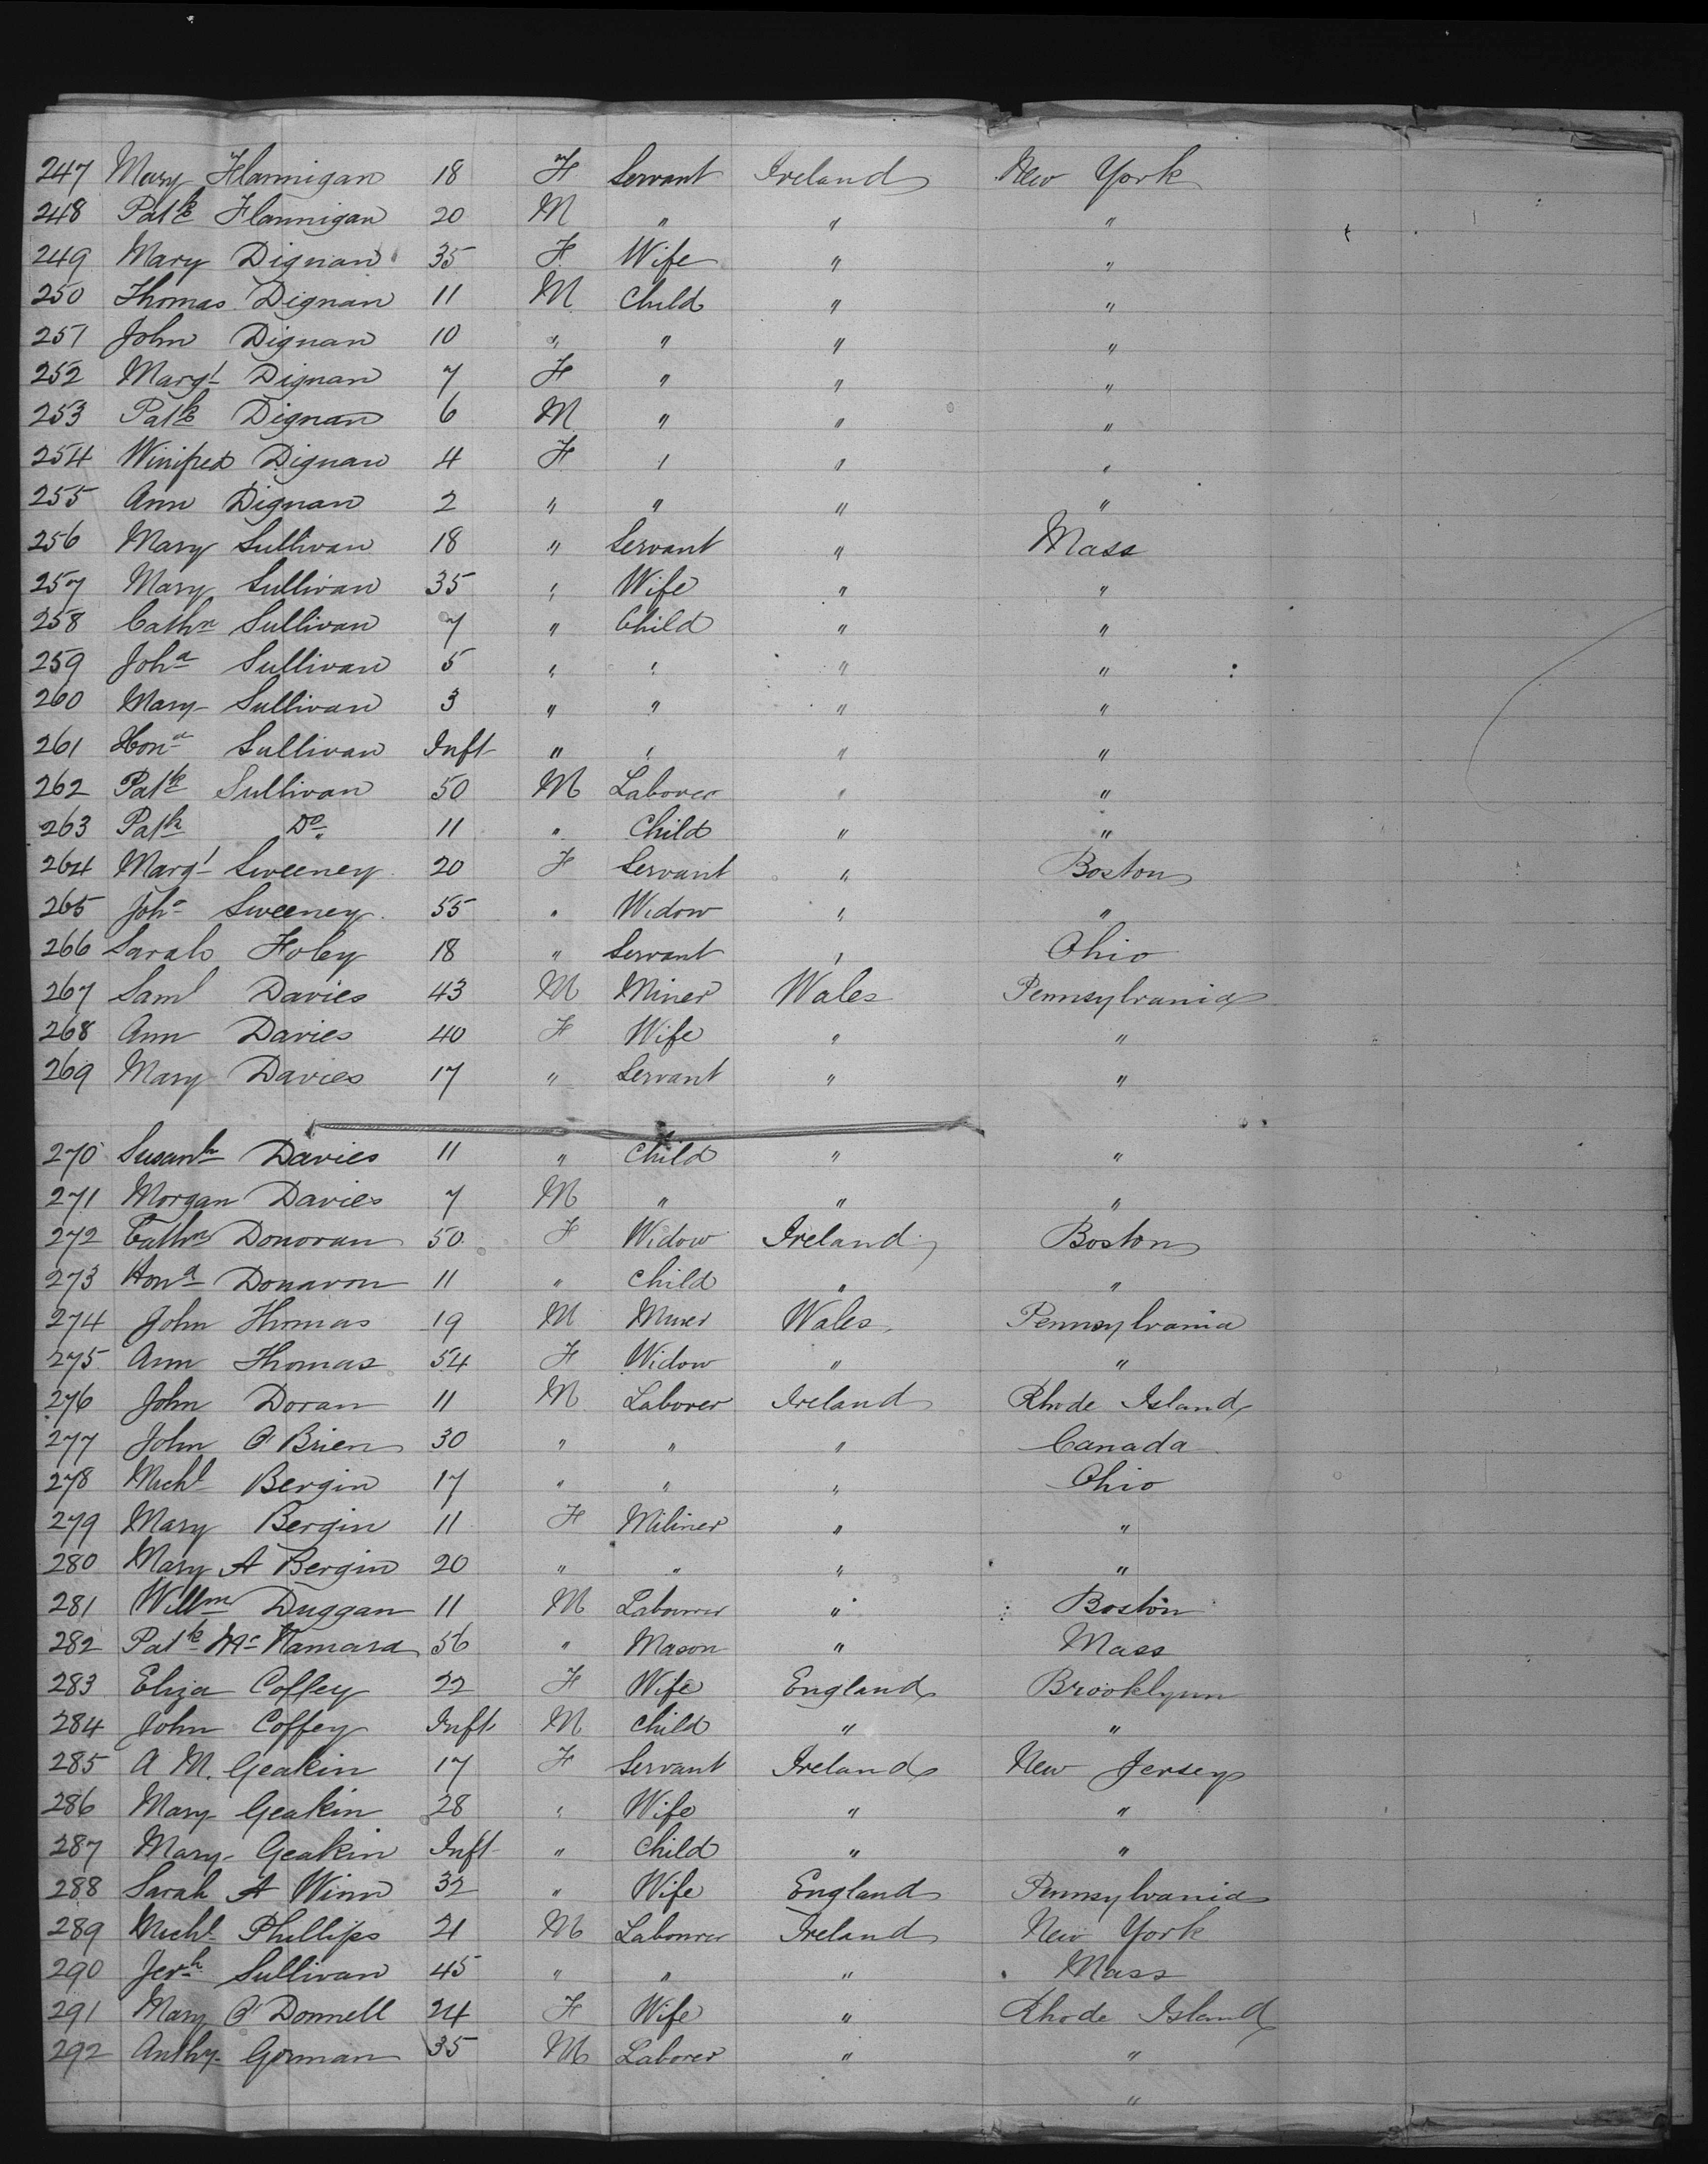 247 Mary Flannigan 18 F Servant Ireland New York
248 Patk Flannigan 20 M " " "
249 Mary Dignan 35 F Wife " "
250 Thomas Dignan 11 M Child " "
251 John Dignan 10 " " " "
252 Margt Dignan 7 F " " "
253 Patk Dignan 6 M " " "
254 Winifred Dignan 4 F " " "
255 Ann Dignan 2 " " " "
256 Mary Sullivan 18 " Servant " Mass
257 Mary Sullivan 35 " Wife " "
258 Cathn Sullivan 7 " Child " "
259 Joha Sullivan 5 " " " "
260 Mary Sullivan 3 " " " "
261 Hona Sullivan Inft " " " "
262 Patk Sullivan 50 M Laborer " "
263 Patk Do 11 " Child " "
264 Margt Sweeney 20 F Servant " Boston
265 Joha Sweeney 55 " Widow " "
266 Sarah Foley 18 " Servant " Ohio
267 Saml Davies 43 M Miner Wales Pennsylvania
268 Ann Davies 40 F Wife " "
269 Mary Davies 17 " Servant " "
270 Susanh Davies 11 " Child " "
271 Morgan Davies 7 M " " "
272 Cathn Donovan 50 F Widow Ireland Boston
273 Hona Donavon 11 " Child " "
274 John Thomas 19 M Miner Wales Pennsylvania
275 Ann Thomas 54 F Widow " "
276 John Doran 11 M Laborer Ireland Rhode Island
277 John O'Brien 30 " " " Canada
278 Michl Bergin 17 " " " Ohio
279 Mary Bergin 11 F Miliner " "
280 Mary A Bergin 20 " " " "
281 Willm Duggan 11 M Labourer " Boston
282 Patk McNamara 56 " Mason " Mass
283 Eliza Coffey 22 F Wife England Brooklynn
284 John Coffey Inft M Child " "
285 A M. Geakin 17 F Servant Ireland New Jersey
286 Mary Geakin 28 " Wife " "
287 Mary Geakin Inft " Child " "
288 Sarah A Winn 32 " Wife England Pennsylvania
289 Michl Phillips 21 M Labourer Ireland New York
290 Jerh Sullivan 45 " " " Mass
291 Mary O'Donnell 24 F Wife " Rhode Island
292 Anthy Gorman 35 M Laborer " "
"